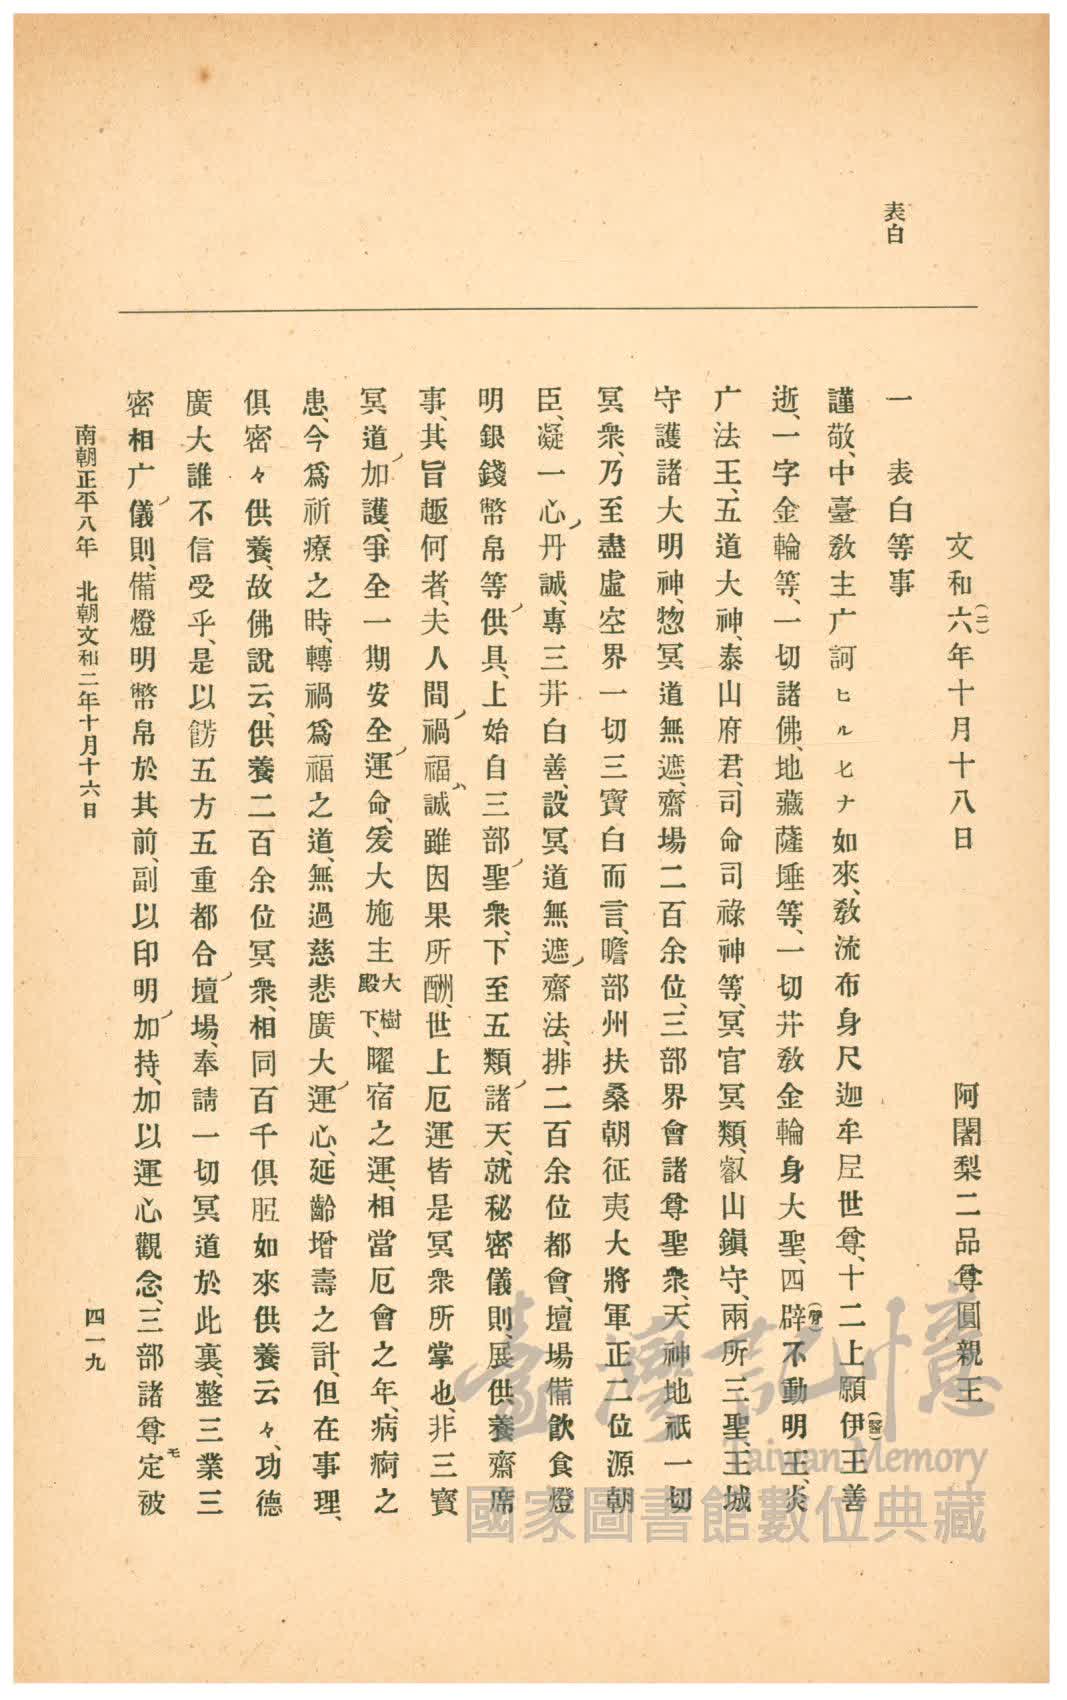 表白
文和六(二)年十月十八日　阿闍梨二品尊圓親王
一　表白等事
謹敬、中臺敎主广訶ヒルヒナ如來、敎流布身尺迦牟尼世尊、十二上願伊(醫)王善
逝、一字金輪等、一切諸佛、地藏薩埵等、一切井敎金輪身大聖、四辟(臂)不動明王、炎
广法王、五道大神、泰山府君、司命司祿神等、冥官冥類、叡山鎭守、兩所三聖、王城
守護諸大明神、惣冥道無遮、齋場二百余位、三部界會諸尊聖衆、天神地祇一切
冥衆、乃至盡虛空界一切三寶白而言、瞻部州扶桑朝征夷大將軍正二位源朝
臣、凝一心ノ丹誠、專三井白善、設冥道無遮ノ齋法、排二百余位都會、壇場備飮食燈
明銀錢幣帛等ノ供具、上始自三部ノ聖衆、下至五類ノ諸天、就秘密儀則、展供養齋席
事、其旨趣何者、夫人間ノ禍福ハ誠雖因果所酬、世上厄運皆是冥衆所掌也、非三寶
冥道ノ加護、爭全一期安全ノ運命、爰大施主大樹殿下、曜宿之運、相當厄會之年、病痾之
患、今爲祈療之時、轉禍爲福之道、無過慈悲廣大ノ運心、延齡增壽之計、但在事理、
俱密々供養、故佛說云、供養二百余位冥衆、相同百千俱胝如來供養云々、功德
廣大誰不信受乎、是以餝五方五重都合ノ壇場、奉請一切冥道於此裏、整三業三
密相广ノ儀則、備燈明幣帛於其前、副以印明ノ加持、加以運心觀念、三部諸尊定モ被
南朝正平八年　北朝文和二年十月十六日
四一九
臺灣記憶
Taiwan Memory
國家圖書館數位典藏